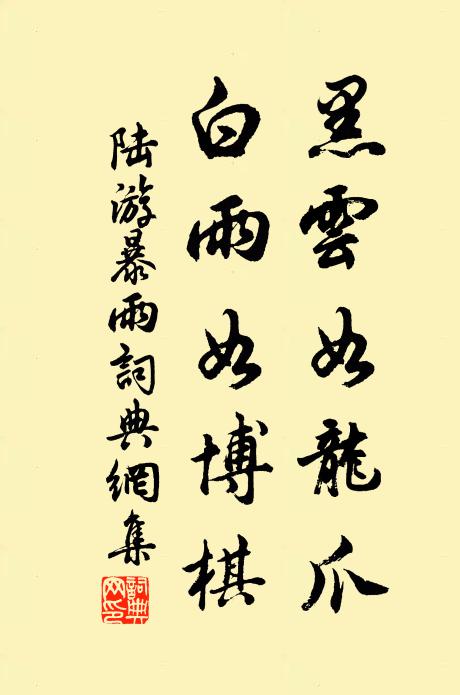 黑雲如龍爪
白雨如博棋
陆游暴雨詞典網集
詞典网印